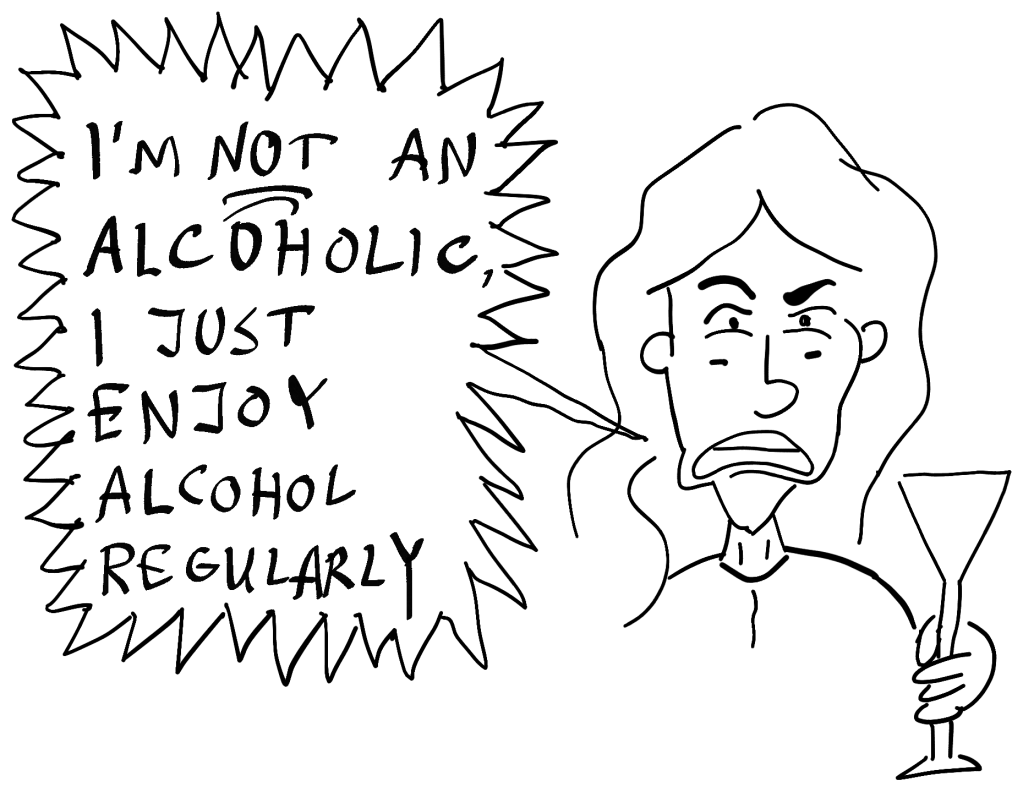 I'M NOT AN
ALCOHOLIC,
I JUST
ENJOY
ALCOHOL
REGULARLY